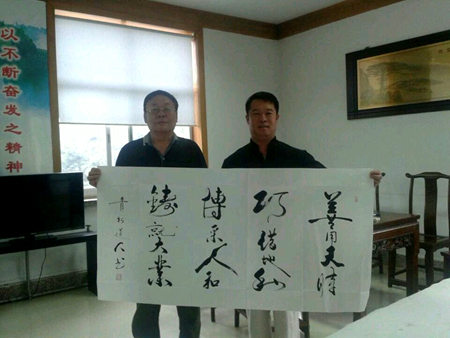 以不断奋发之精神
善用天時
巧借地利
博采人和
鑄就大業